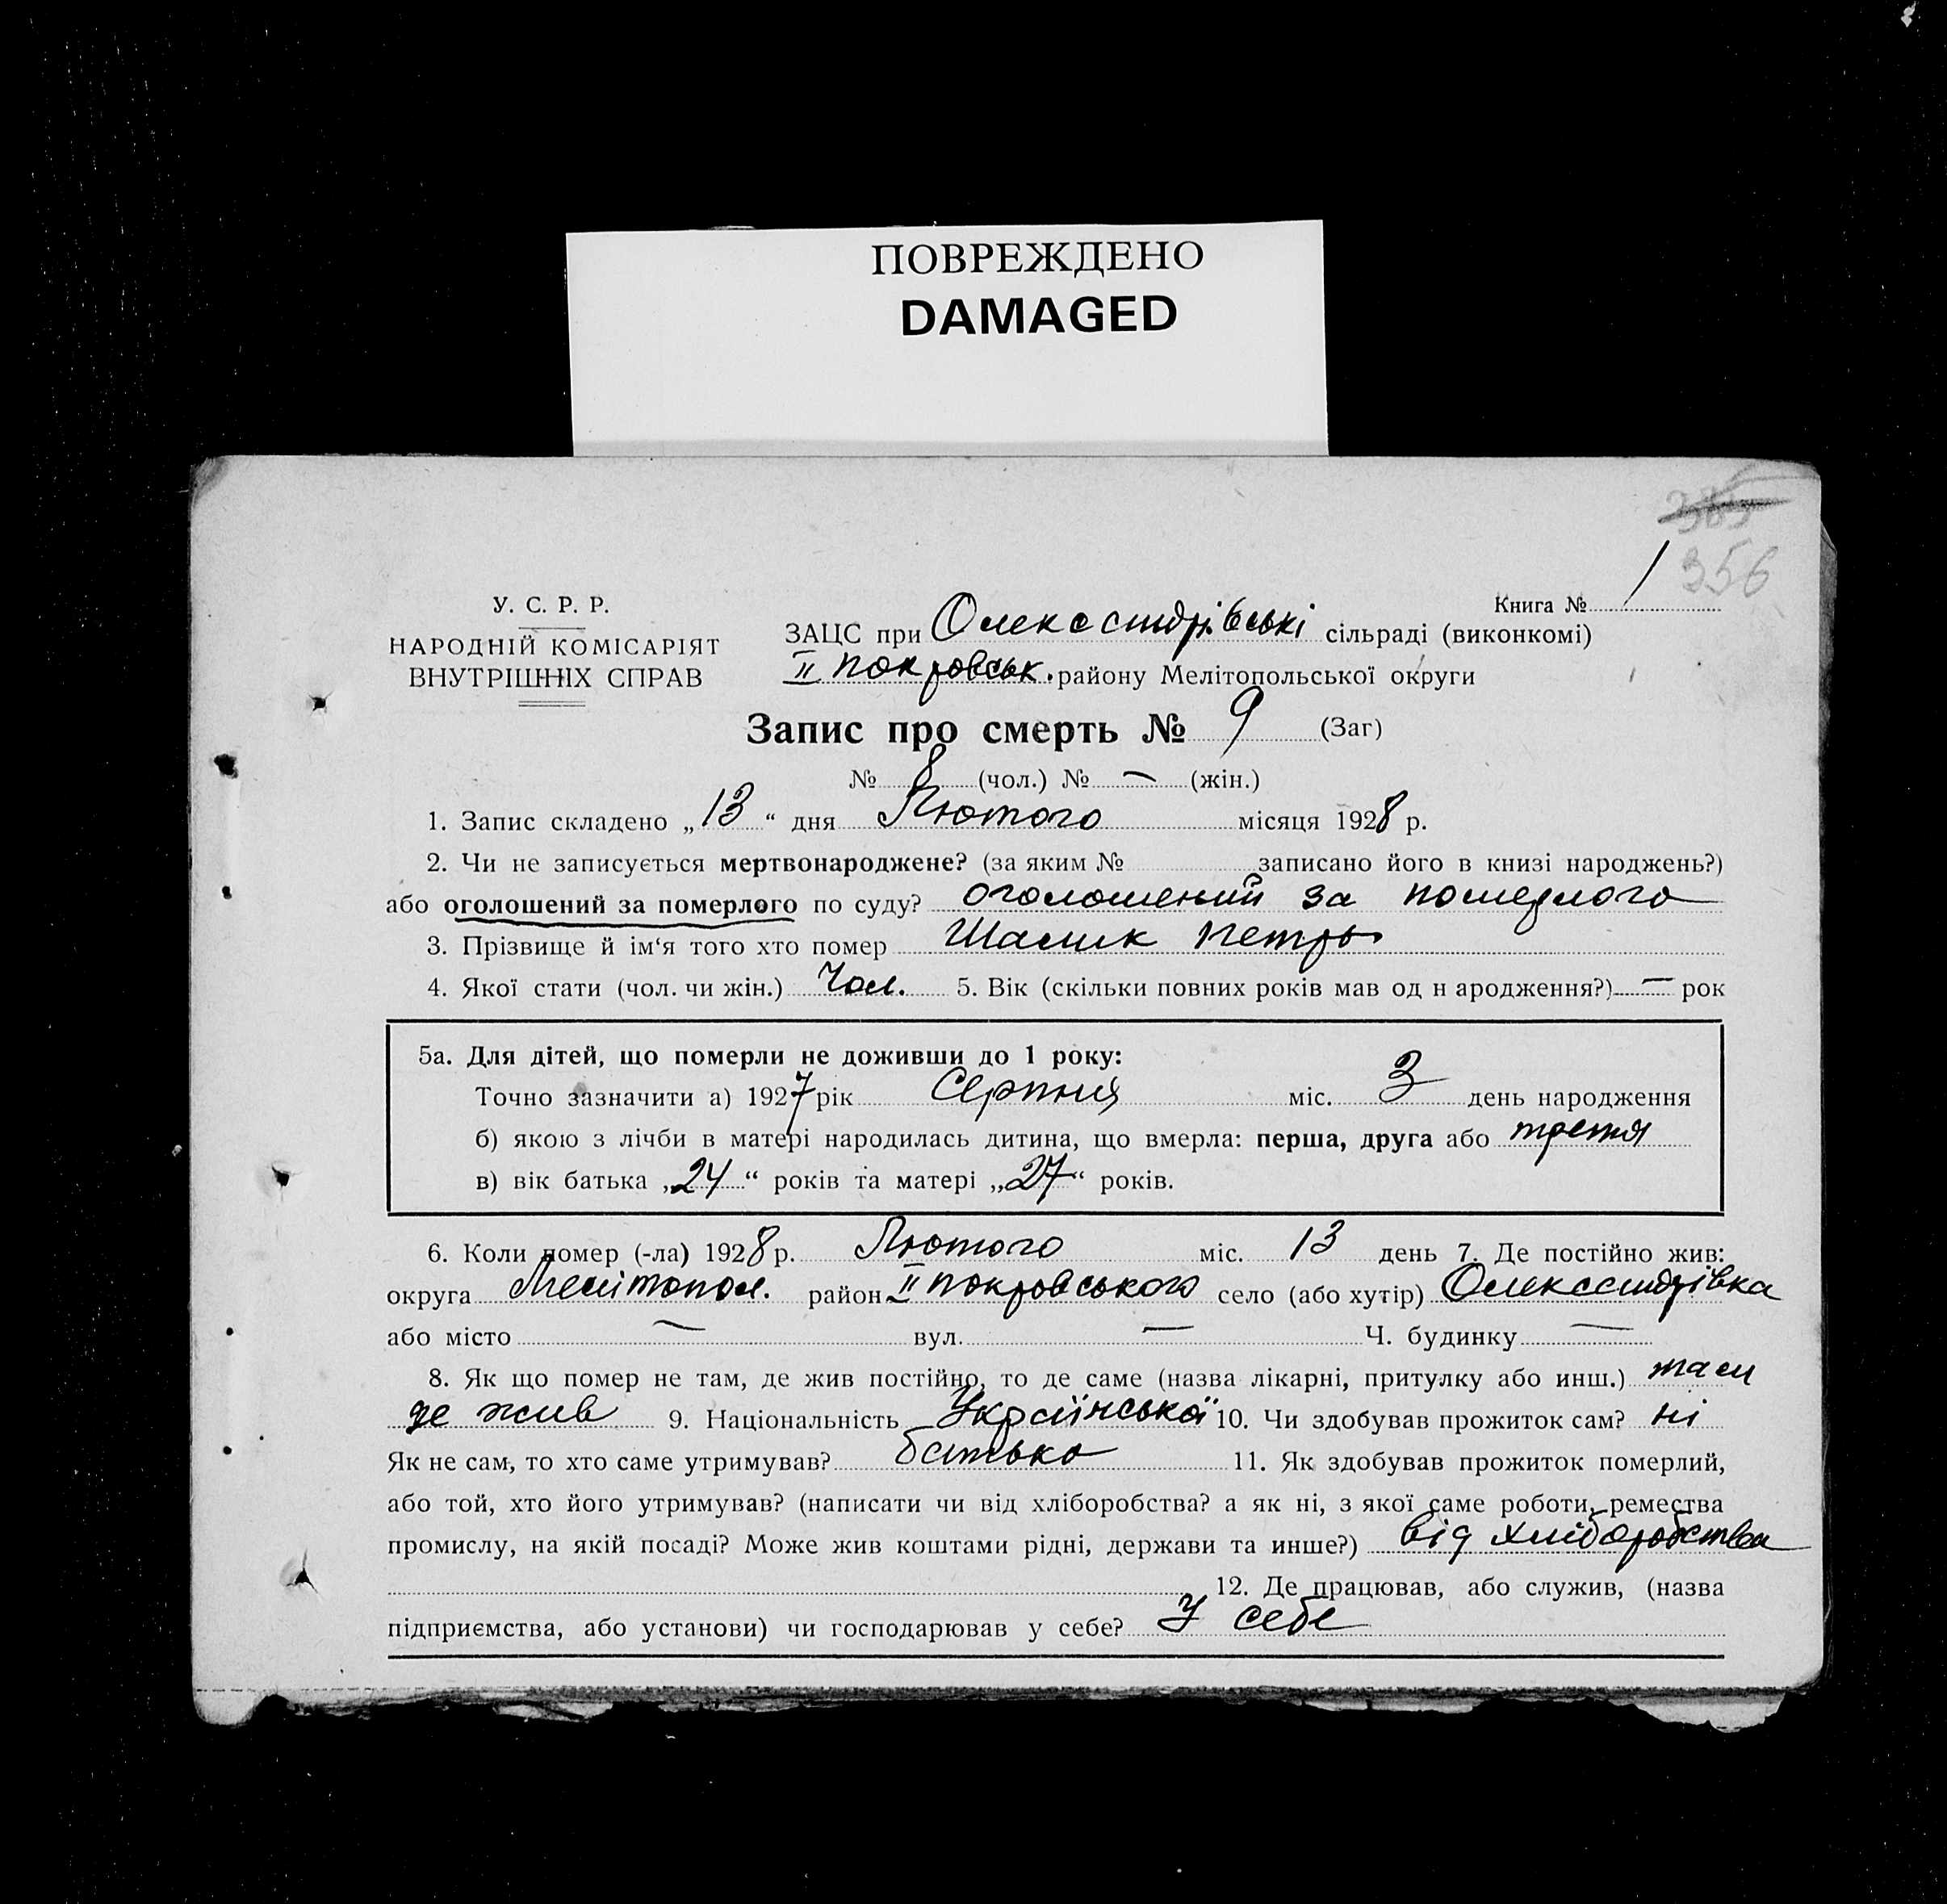 ПОВРЕЖДЕНО
DAMAGED
385
356
У. С. Р. Р.
НАРОДНІЙ КОМІСАРІЯТ
ВНУТРІШНІХ СПРАВ
Книга № 1
ЗАЦС при Олександрівські сільраді (виконкомі)
II покровськ. району Мелітопольської округи
Запис про смерть № 9 (Заг)
№ 8 (чол.) № — (жін.)
1. Запис складено „13“ дня Лютого місяця 1928 р.
2. Чи не записується мертвонароджене? (за яким № записано його в книзі народжень?)
або оголошений за померлого по суду? оголошений за померлого
3. Прізвище й ім‘я того хто помер Шамик Петро
4. Якої стати (чол. чи жін.) Чол. 5. Вік (скільки повних років мав од н ародження?) — рок
5а. Для дітей, що померли не доживши до 1 року:
Точно зазначити а) 1927 рік Серпня міс. 3 день народження
б) якою з лічби в матері народилась дитина, що вмерла: перша, друга або третя
в) вік батька „24“ років та матері „27“ років.
6. Коли помер (-ла) 1928 р. Лютого міс. 13 день 7. Де постійно жив:
округа Мелітопол. район II покровського село (або хутір) Олександрівка
або місто — вул. — Ч. будинку —
8. Як що помер не там, де жив постійно, то де саме (назва лікарні, притулку або инш.) там
де жив 9. Національність Української 10. Чи здобував прожиток сам? ні
Як не сам, то хто саме утримував? батько 11. Як здобував прожиток померлий,
або той, хто його утримував? (написати чи від хліборобства? а як ні, з якої саме роботи, ремества
промислу, на якій посаді? Може жив коштами рідні, держави та инше?) від хліборобства
12. Де працював, або служив, (назва
підприємства, або установи) чи господарював у себе? У себе